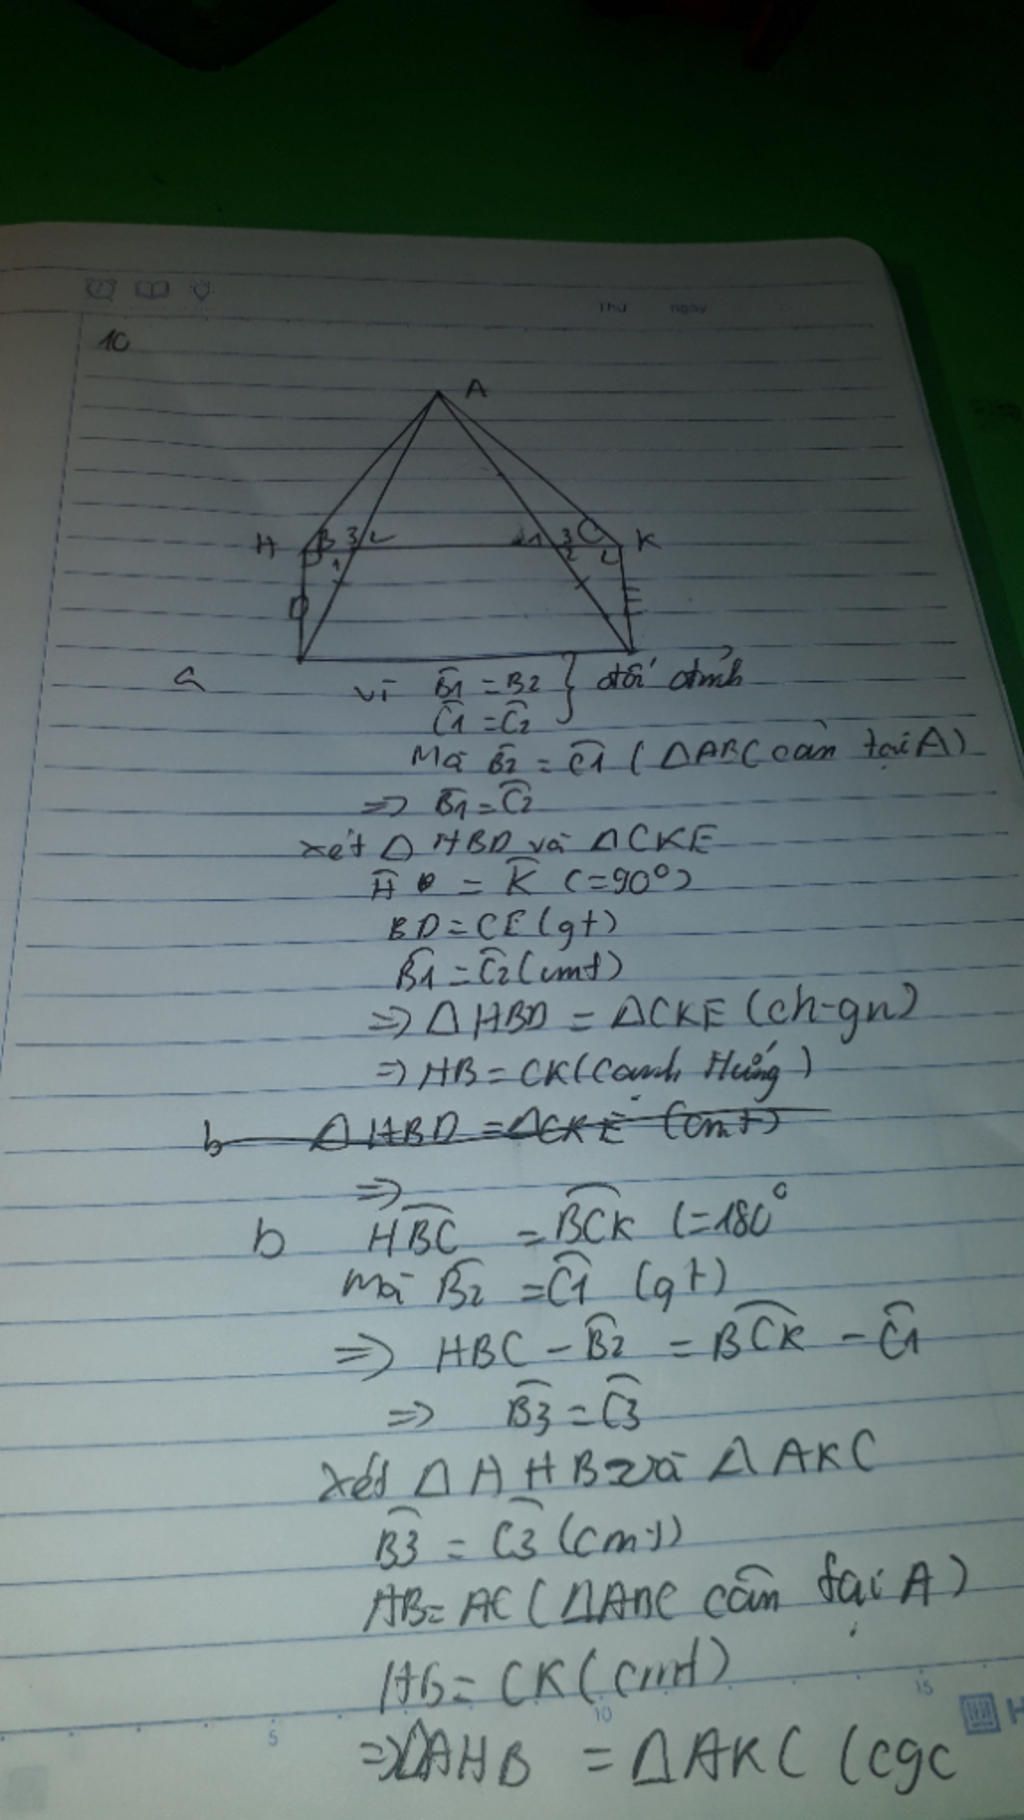 Thứ ngày
10
A
H B 3 2 1 3 C K
1 2 2
a vì B̂1 = B2 } đối đỉnh
Ĉ1 = Ĉ2
Mà B̂2 = Ĉ1 ( ΔABC cân tại A)
=> B̂1 = Ĉ2
xét Δ HBD và ΔCKE
Ĥ = K̂ (=90°)
BD = CE (gt)
B̂1 = Ĉ2 (cmt)
=> Δ HBD = ΔCKE (ch-gn)
=> HB = CK (cạnh tứ)
b Δ HBD = ΔCKE (cmt)
=>
b HBC = BCK (=180°
Mà B̂2 = Ĉ1 (gt)
=> HBC - B̂2 = BCK - Ĉ1
=> B̂3 = Ĉ3
xét Δ A H B và Δ AKC
B̂3 = Ĉ3 (cmt)
AB = AC ( ΔABC cân tại A )
HB = CK ( cmt)
=> ΔAHB = ΔAKC (cgc
5 10 15
H